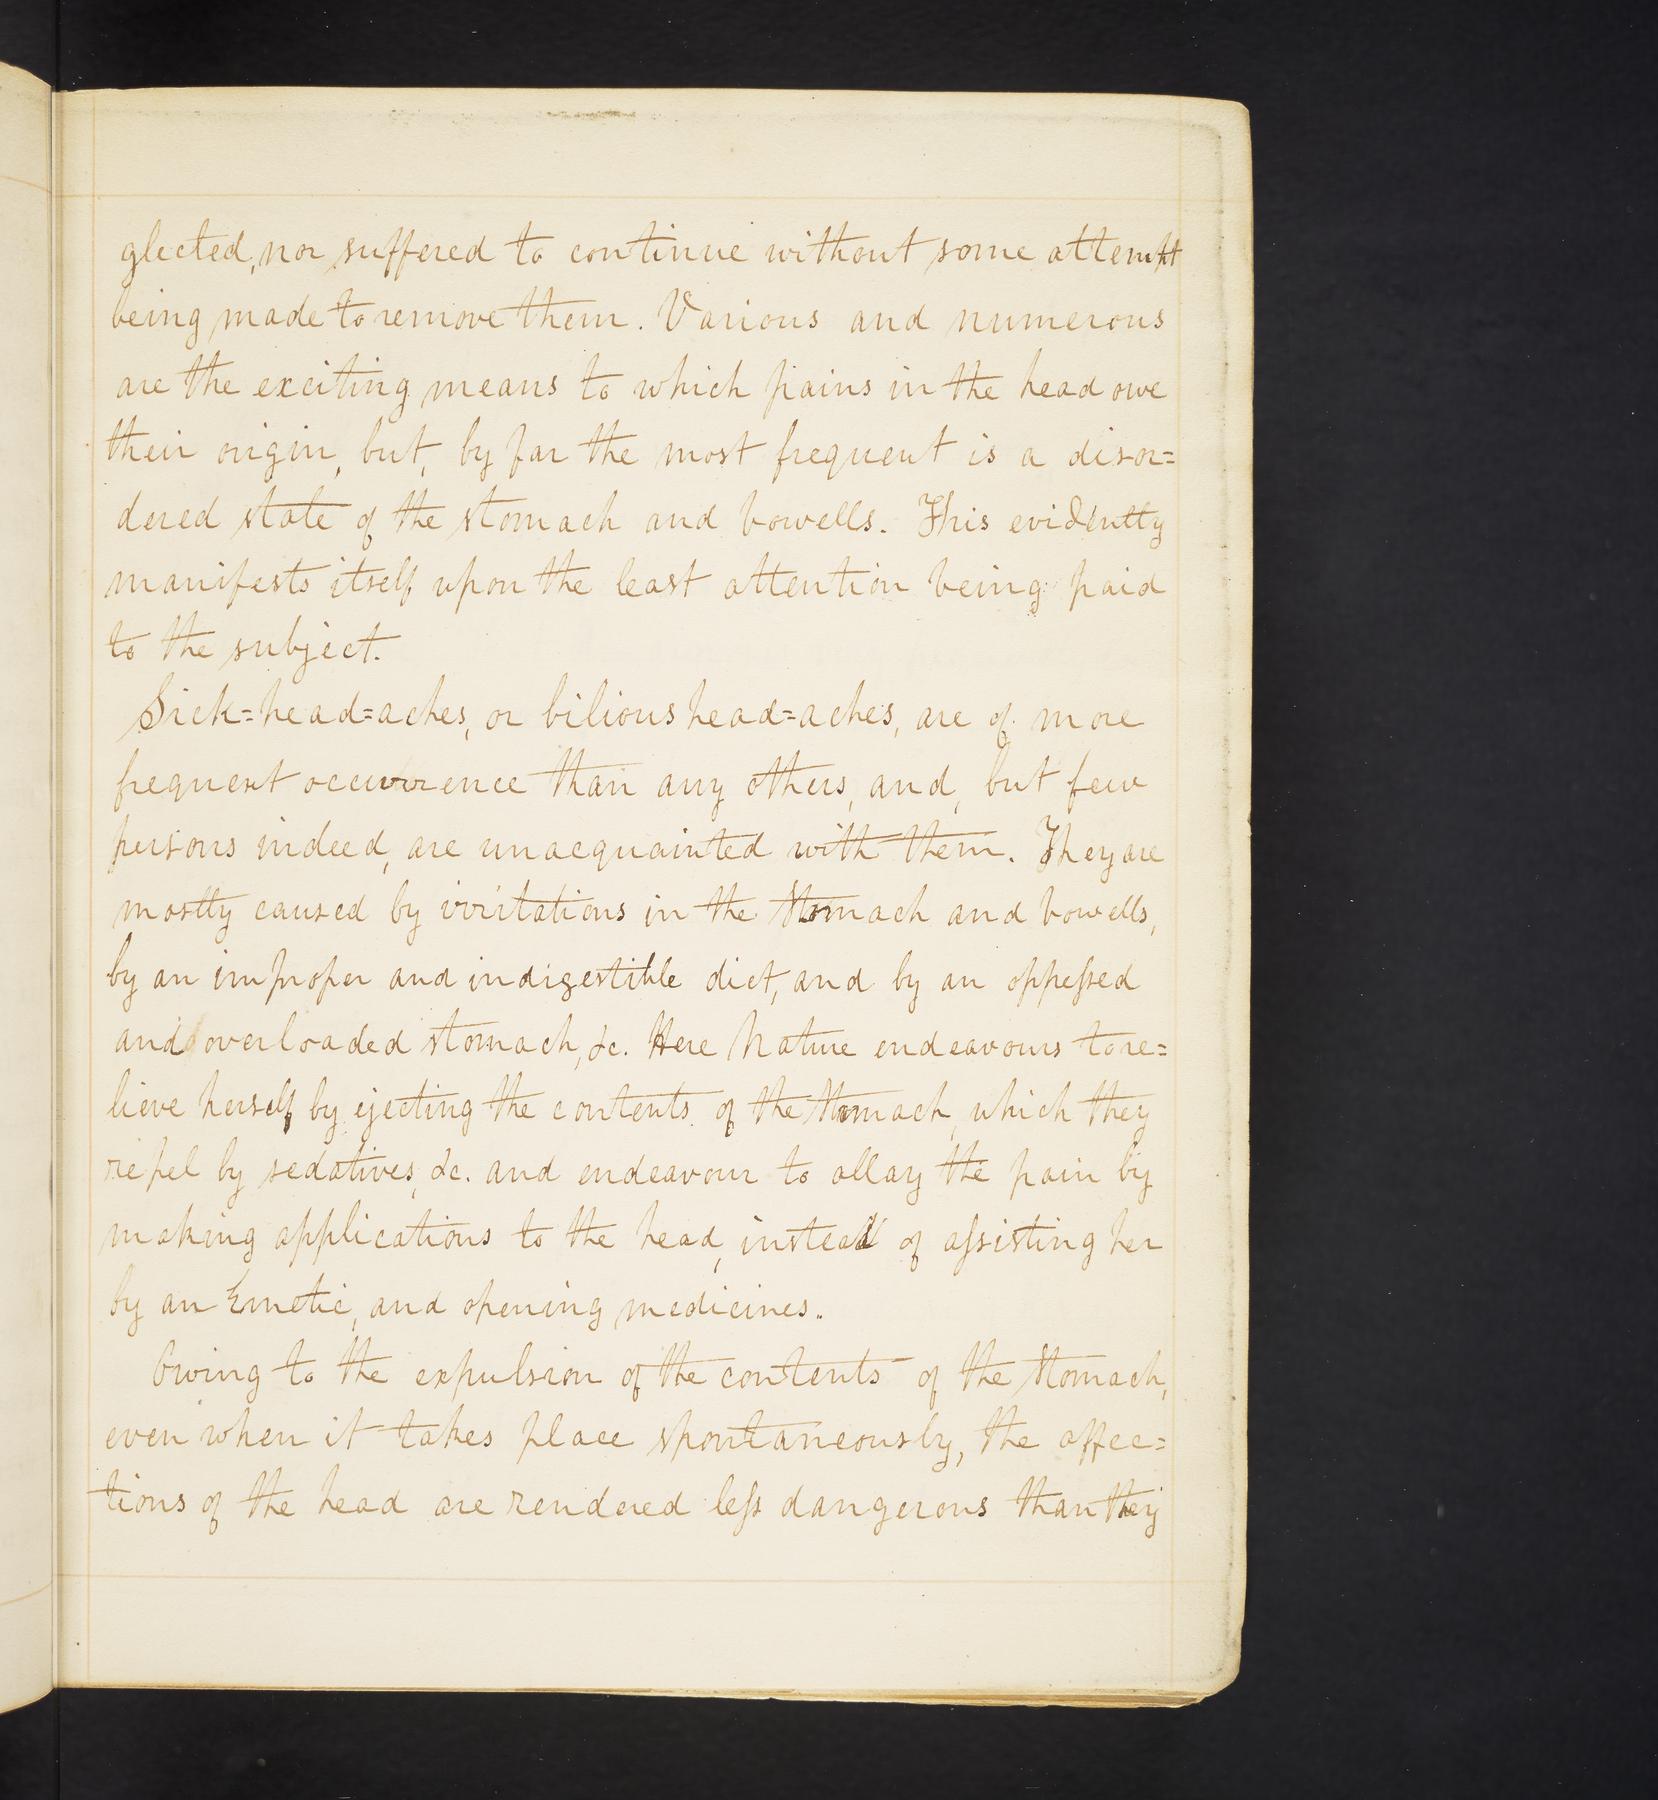 glected, nor suffered to continue without some attempt
being made to remove them. Various and numerous
are the exciting means to which pains in the head owe
their origin, but, by far the most frequent is a disor=
dered state of the stomach and bowells. This evidently
manifests itself upon the least attention being paid
to the subject.
Sick=head=aches, or bilious head=aches, are of more
frequent occurrence than any others, and, but few
persons indeed, are unacquainted with them. They are
mostly caused by irritations in the Stomach and bowells,
by an improper and indigestible diet, and by an oppeſsed
and overloaded stomach, &c. Here Nature endeavours to re=
lieve herself by ejecting the contents of the Stomach, which they
repel by sedatives, &c. and endeavour to allay the pain by
making applications to the head, instead of aſsisting her
by an Emetic, and opening medicines.
Owing to the expulsion of the contents of the Stomach,
even when it takes place spontaneously, the affec=
tions of the head are rendered leſs dangerous than they